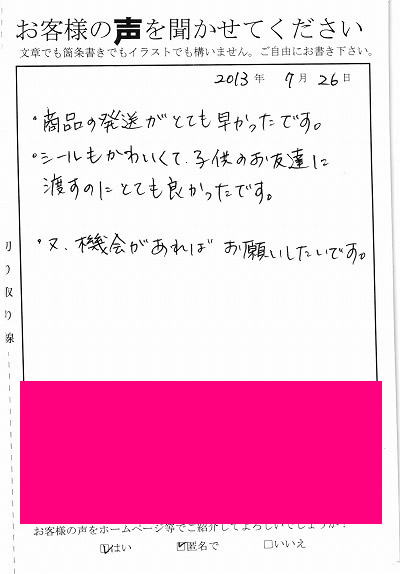 お客様の声を聞かせてください
文章でも箇条書きでもイラストでも構いません。ご自由にお書き下さい。
2013年 7月 26日
・商品の発送がとても早かったです。
・シールもかわいくて、子供のお友達に
渡すのにとても良かったです。
・又、機会があれば お願いしたいです。
切り取り線
お客様の声をホームページ等でご紹介してよろしいでしょうか?
☑はい ☑匿名で □いいえ